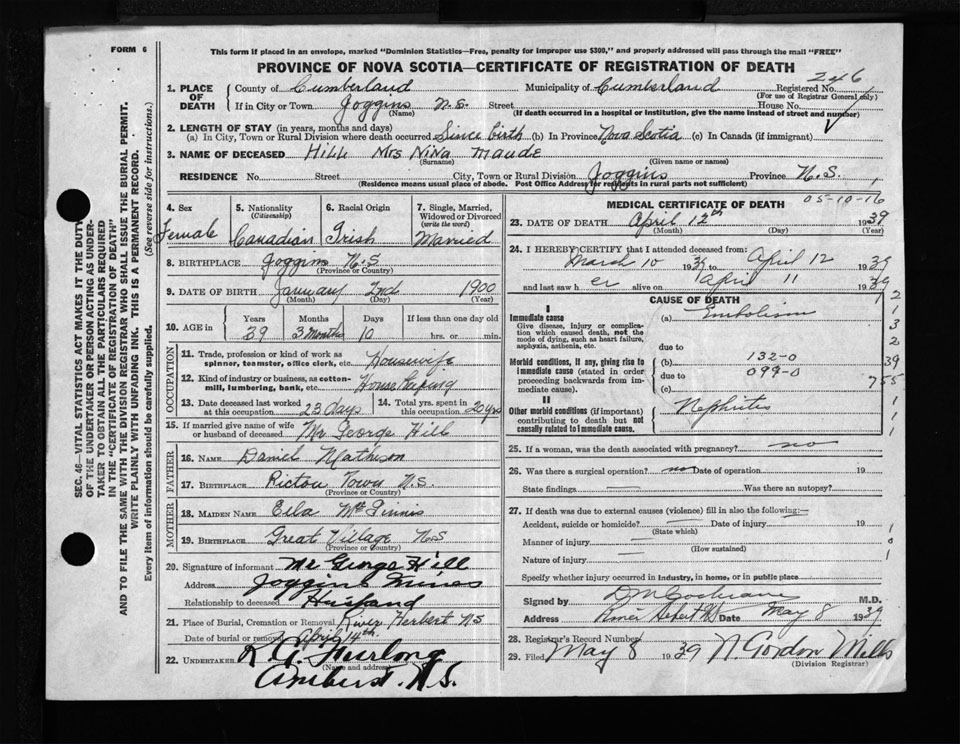 FORM 6
This form if placed in an envelope, marked "Dominion Statistics—Free, penalty for improper use $300," and properly addressed will pass through the mail "FREE"
PROVINCE OF NOVA SCOTIA—CERTIFICATE OF REGISTRATION OF DEATH
246
1. PLACE OF DEATH
County of Cumberland Municipality of Cumberland Registered No.
(For use of Registrar General only)
If in City or Town Joggins N.S. Street House No.
(Name) (If death occurred in a hospital or institution, give the name instead of street and number)
2. LENGTH OF STAY (in years, months and days)
(a) In City, Town or Rural Division where death occurred Since birth (b) In Province Nova Scotia (c) In Canada (if immigrant)
3. NAME OF DECEASED Hill Mrs Nina Maude
(Surname) (Given name or names)
RESIDENCE No. Street City, Town or Rural Division Joggins Province N.S.
(Residence means usual place of abode. Post Office Address for residents in rural parts not sufficient)
4. Sex Female
5. Nationality (Citizenship) Canadian
6. Racial Origin Irish
7. Single, Married, Widowed or Divorced (write the word) Married
8. BIRTHPLACE Joggins N.S
(Province or Country)
9. DATE OF BIRTH January 2nd 1900
(Month) (Day) (Year)
10. AGE in Years Months Days If less than one day old
39 3 Months 10 hrs. or min.
OCCUPATION
11. Trade, profession or kind of work as spinner, teamster, office clerk, etc. Housewife
12. Kind of industry or business, as cotton-mill, lumbering, bank, etc. House Keeping
13. Date deceased last worked at this occupation 23 days
14. Total yrs. spent in this occupation 20 yrs
15. If married give name of wife or husband of deceased Mr George Hill
FATHER
16. NAME Daniel Mathison
17. BIRTHPLACE Pictou Town N.S.
(Province or Country)
MOTHER
18. MAIDEN NAME Ella
19. BIRTHPLACE Great Village N.S
(Province or Country)
20. Signature of informant Mr George Hill
Address Joggins Mines
Relationship to deceased Husband
21. Place of Burial, Cremation or Removal River Herbert NS
Date of burial or removal April 14th.
22. UNDERTAKER K. A. Furlong
(Name and address)
Amherst. N.S.
MEDICAL CERTIFICATE OF DEATH
05-10-16
23. DATE OF DEATH April 12th 1939
(Month) (Day) (Year)
24. I HEREBY CERTIFY that I attended deceased from:
March 10 1939 to April 12 1939
and last saw h er alive on April 11 1939
CAUSE OF DEATH
I
Immediate cause (a) Embolism
Give disease, injury or complication which caused death, not the mode of dying, such as heart failure, asphyxia, asthenia, etc.
due to
Morbid conditions, if any, giving rise to immediate cause (stated in order proceeding backwards from immediate cause).
(b) 132-0
due to 099-0
(c)
II
Other morbid conditions (if important) contributing to death but not causally related to immediate cause.
Nephritis
2
1
3
2
39
755
1
1
1
25. If a woman, was the death associated with pregnancy? no
26. Was there a surgical operation? no Date of operation 19
State findings Was there an autopsy?
27. If death was due to external causes (violence) fill in also the following:—
Accident, suicide or homicide? Date of injury 19
(State which)
Manner of injury
(How sustained)
Nature of injury
Specify whether injury occurred in industry, in home, or in public place
Signed by D M Cochrane M.D.
Address River Hebert NS Date May 8 1939
28. Registrar's Record Number
29. Filed May 8 1939 N. Gordon Mills
(Division Registrar)
SEC. 46—VITAL STATISTICS ACT MAKES IT THE DUTY
OF THE UNDERTAKER OR PERSON ACTING AS UNDER-
TAKER TO OBTAIN ALL THE PARTICULARS REQUIRED
IN THE "CERTIFICATE OF REGISTRATION OF DEATH"
AND TO FILE THE SAME WITH THE DIVISION REGISTRAR WHO SHALL ISSUE THE BURIAL PERMIT.
WRITE PLAINLY WITH UNFADING INK. THIS IS A PERMANENT RECORD.
Every item of information should be carefully supplied. (See reverse side for instructions.)